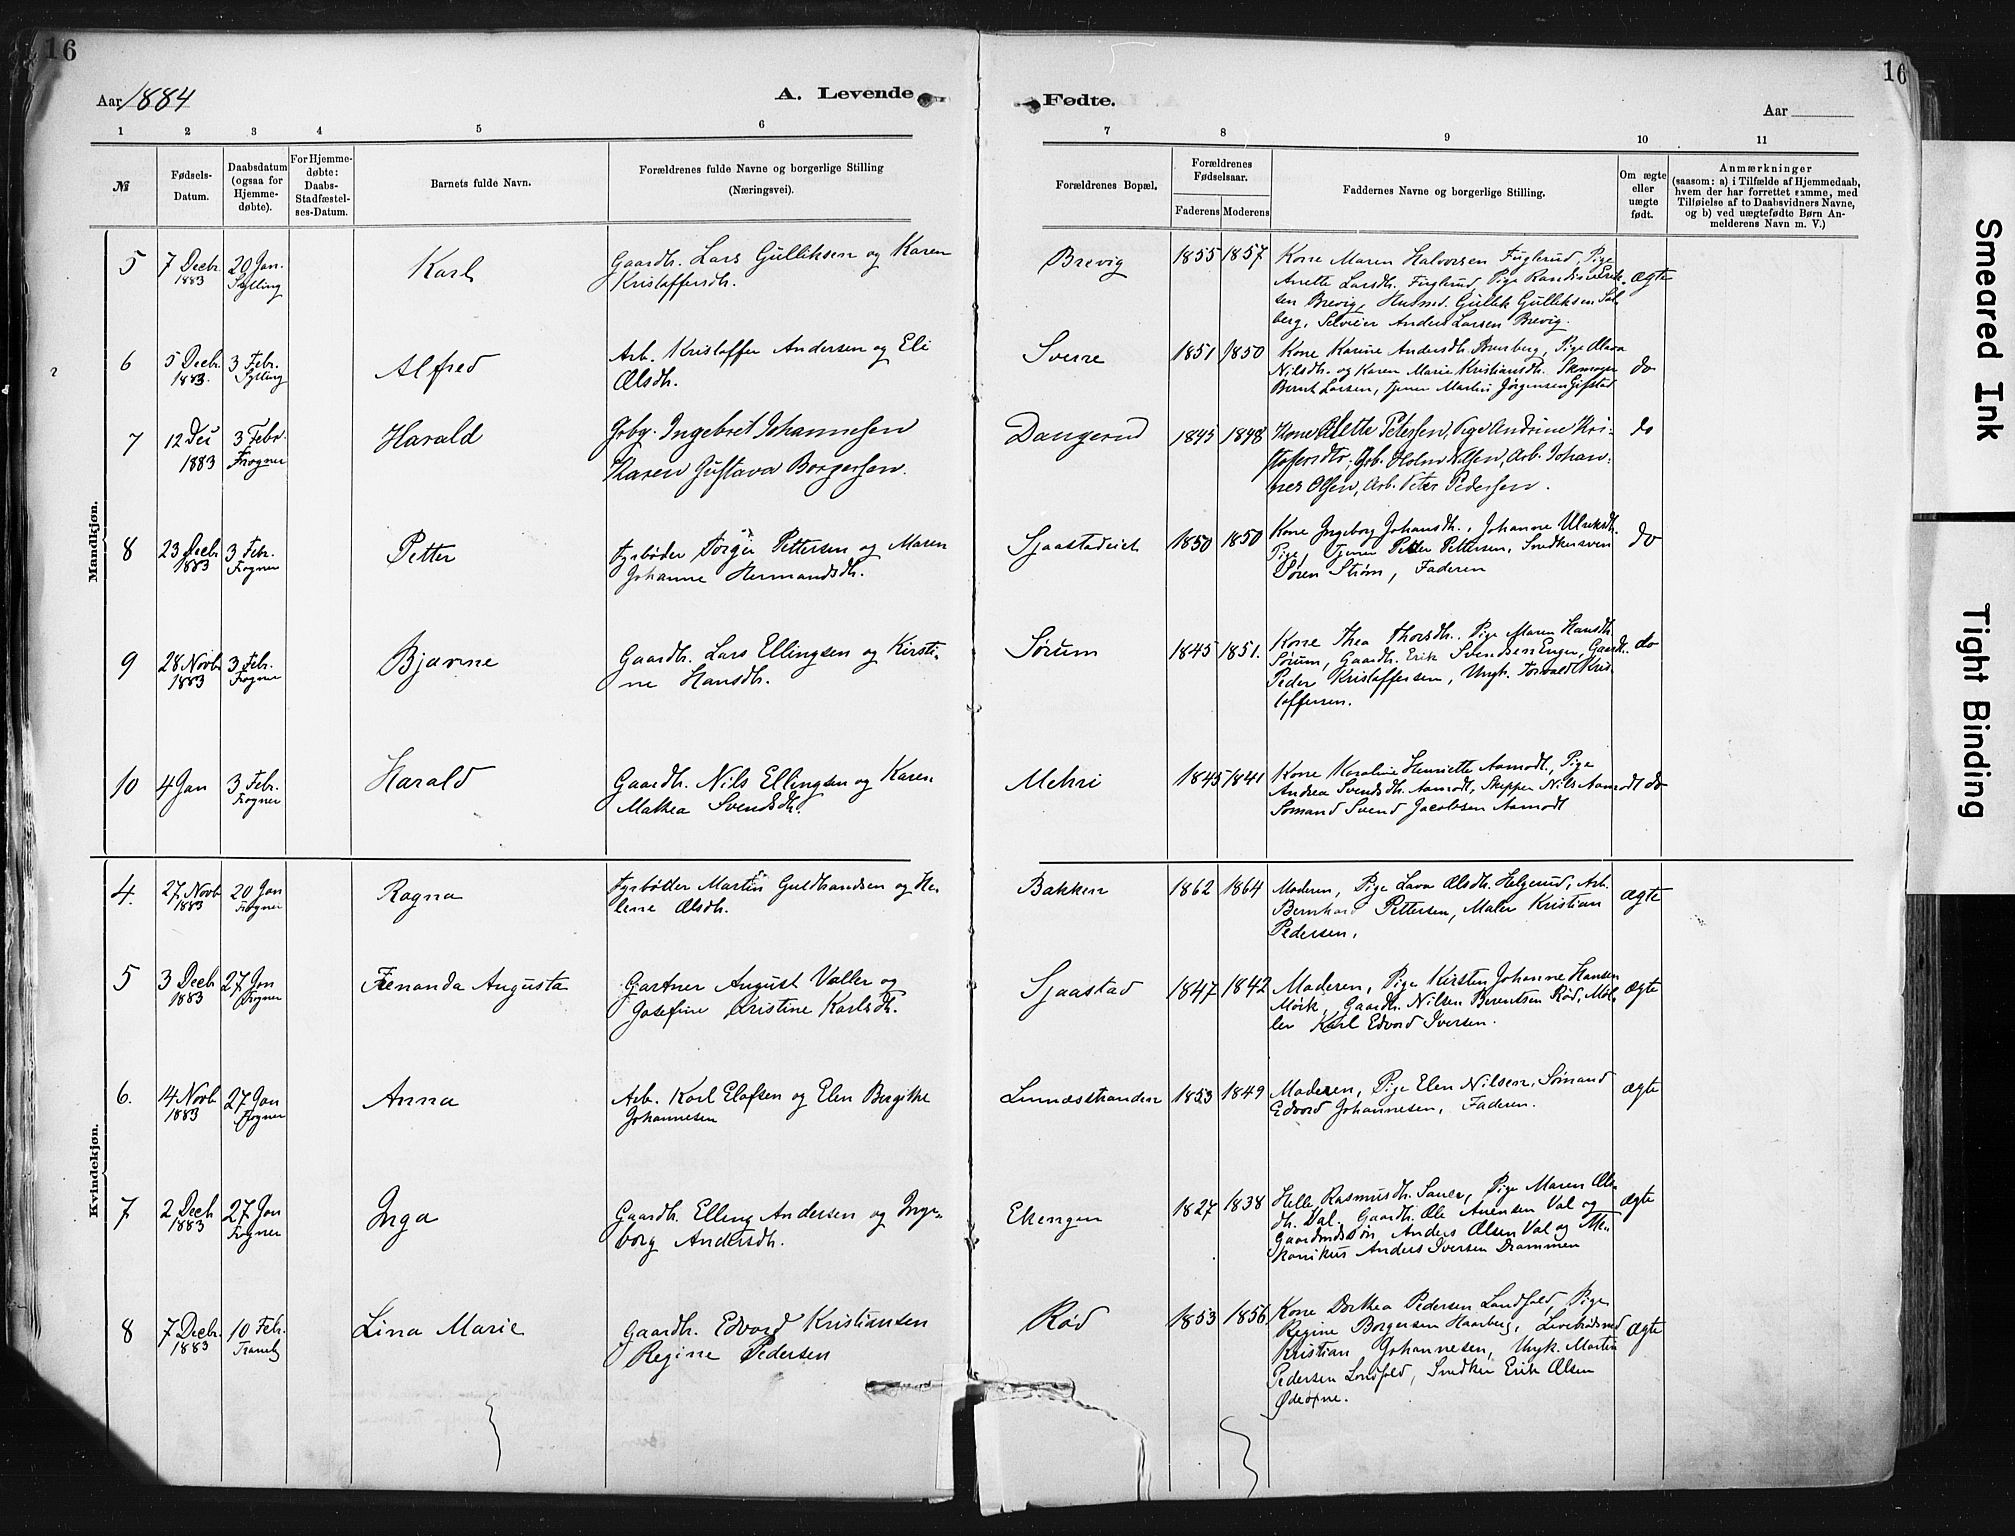 16
16
Aar 1884
A. Levende
Fødte.
Aar
1 2 3 4 5 6 7 8 9 10 11
№
Fødsels-
Datum.
Daabsdatum
(ogsaa for
Hjemme-
døbte).
For Hjemme-
døbte:
Daabs-
Stadfæstel-
ses-Datum.
Barnets fulde Navn.
Forældrenes fulde Navne og borgerlige Stilling
(Næringsvei).
Forældrenes Bopæl.
Forældrenes
Fødselsaar.
Faderens Moderens
Faddernes Navne og borgerlige Stilling.
Om ægte
eller
uægte
født.
Anmærkninger
(saasom: a) i Tilfælde af Hjemmedaab,
hvem der har forrettet samme, med
Tilføielse af to Daabsvidners Navne,
og b) ved uægtefødte Børn An-
melderens Navn m. V.)
Mandkjøn.
5
7 Decbr.
1883
20 Jan.
Sylling
Karl
Gaardbr. Lars Gulliksen og Karen
Kristoffersdtr.
Brevig
1855 1857
Kone Maren Halvorsen Fuglerud, Pige
Anette Larsdtr. Fuglerud, Pige Randine Erik-
sen Brevig, Husmd. Gullik Gulliksen Sol-
berg, Selveier Anders Larsen Brevig.
ægte
6
5 Decbr.
1883.
3 Febr.
Sylling
Alfred
Arb. Kristoffer Andersen og Eli
Olsdtr.
Sverre
1851 1850
Kone Karine Andersdtr. Pige Olava
Nilsdtr. og Karen Marie Kristiansdtr. Skomager
Bernt Larsen, tjener Martin Jørgensen Gifstad
do
7
12 Dec
1883
3 Febr.
Frogner
Harald
Ingebret Johannesen
Karen Gustava Borgersen.
Daugerud
1845 1848
Kone Petersen, Pige Andrine Kri-
stofersdtr. Holm Nilsen, Arb. Johan-
nes Olsen, Arb. Peter Pedersen.
do
8
23 Decbr.
1883
3 Febr.
Frogner
Petter
Fyrbøder Torger Pettersen og Maren
Johanne Hermandsdtr.
Sjaastadeiet
1850 1850
Kone Ingeborg Johansdtr., Johanne Ulriksdtr.
Pige, Tjener Petter Pettersen, Snedkersven
Søren Strøm, Faderen
do
9
28 Novb
1883
3 Feb.
Frogner
Bjarne
Gaardbr. Lars Ellingsen og Kirsti-
ne Hansdtr.
Sørum
1845 1851.
Kone Thea Thorsdtr. Pige Maren Hansdtr.
Sørum, Gaardbr. Erik Svendsen Enger, Gaardbr.
Peder Kristoffersen, Ungk. Torvald Kris-
toffersen.
do
10
4 Jan
3 Febr.
Frogner
Harald
Gaardbr. Nils Ellingsen og Karen
Mathea Svendsdtr.
Mehri
1845 1841
Kone Karoline Henriette Aamodt, Pige
Andrea Svendsdtr. Aamodt, Skipper Nils Aamodt
Sømand Svend Jacobsen Aamodt
do
Kvindekjøn.
4.
27 Novb
1883
20 Jan
Frogner
Ragna
Fyrbøder Martin Guldhandsen og He-
lene Olsdtr.
Bakken
1862 1864
Moderen, Pige Lava Olsdtr. Helgerud, Arb.
Bernhard Pettersen, Maler Kristian
Pedersen.
ægte
5
3 Decb
1883
27 Jan
Frogner
Fernanda Augusta
Gartner August Valler og
Josefine Kristine Karlsdtr.
Sjaastad
1847 1842
Moderen, Pige Kirsten Johanne Hansen
Mørk, Gaardbr. Nilsen Berentsen Rød, Møl-
ler Karl Edvard Iversen.
ægte
6.
14 Novb
1883
27 Jan
Frogner
Anna
Arb. Karl Elofsen og Elen Bergitte
Johannesen
Linnesstranden
1853 1849
Moderen, Pige Elen Nilsen, Sømand
Edvard Johannesen, Faderen.
ægte
7
2 Decb
1883
27 Jan
Frogner
Inga
Gaardbr. Elling Andersen og Inge-
borg Andersdtr.
Ekengen
1827 1838
Helle Rasmusdtr. Pige Maren Ols-
dtr. Val. Gaardbr. Ole Anensen Val og
Gaardmdssøn, Anders Olsen Val og Me-
kanikus Anders Iversen Drammen
ægte
8
7 Decbr.
1883
10 Feb.
Tranby
Lina Marie
Gaardbr. Edvard Kristiansen
Regine Pedersen
Rød
1853 1856
Kone Dorthea Pedersen Landfald, Pige
Regine Borgersen Haarberg, Levebrødsmd
Kristian Johannesen, Ungk. Martin
Pedersen Landfald, Snedker Erik Olsen
ægte
Smeared Ink
Tight Binding